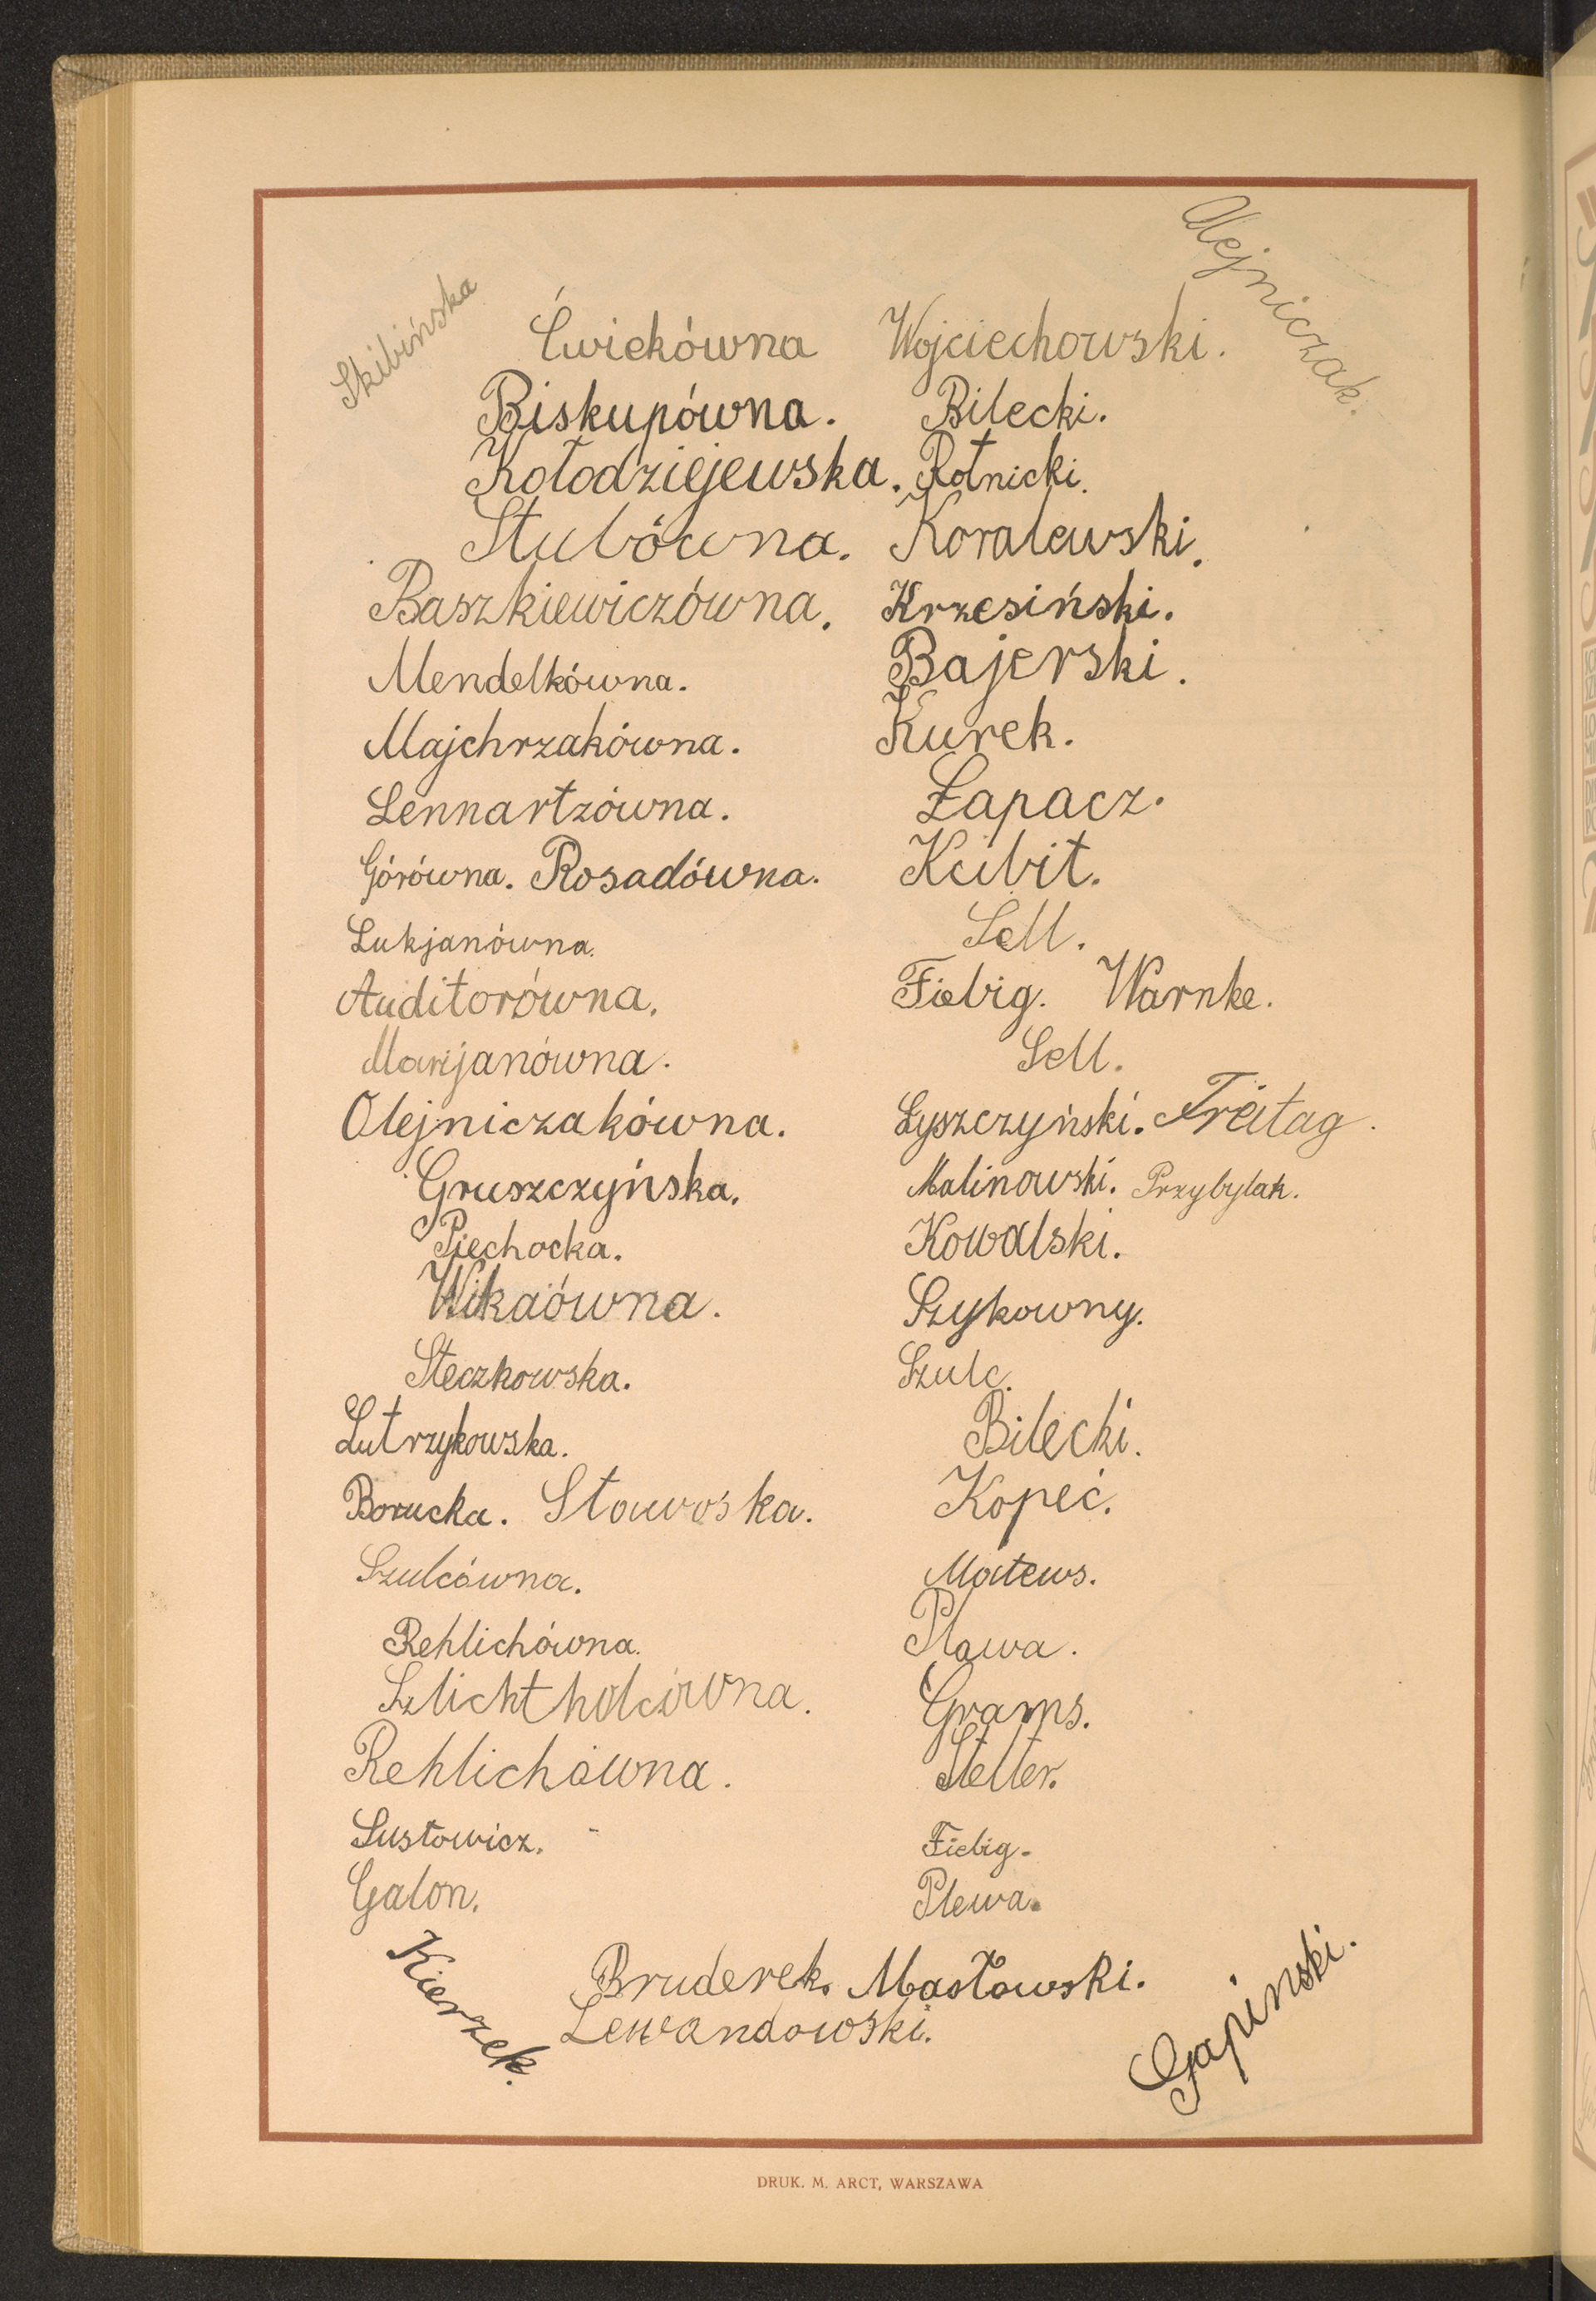 Skibińska
Olejniczak.
Ćwiekówna Wojciechowski.
Biskupówna. Bilecki.
Kołodziejewska. Rotnicki.
Stubówna. Koralewski.
Baszkiewiczówna. Krzesiński.
Mendelkówna. Bajerski.
Majchrzakówna. Kurek.
Lennartzówna. Łapacz.
Górówna. Rosadówna. Kubit.
Lukjanówna. Sell.
Auditorówna. Fiebig. Warnke.
Marjanówna. Sell.
Olejniczakówna. Łyszczyński. Freitag.
Gruszczyńska. Malinowski. Przybylak.
Piechocka. Kowalski.
Wikaówna. Szykowny.
Steczkowska. Szulc.
Lutrzykowska. Bilecki.
Borucka. Kopeć.
Szulcówna. Matews.
Rehlichówna. Plawa.
Szlichtholcówna. Grams.
Rehlichówna. Stelter.
Sustowicz. Fiebig.
Galon. Plewa.
Kierzek.
Bruderek. Masłowski.
Lewandowski.
Gapinski.
DRUK. M. ARCT, WARSZAWA